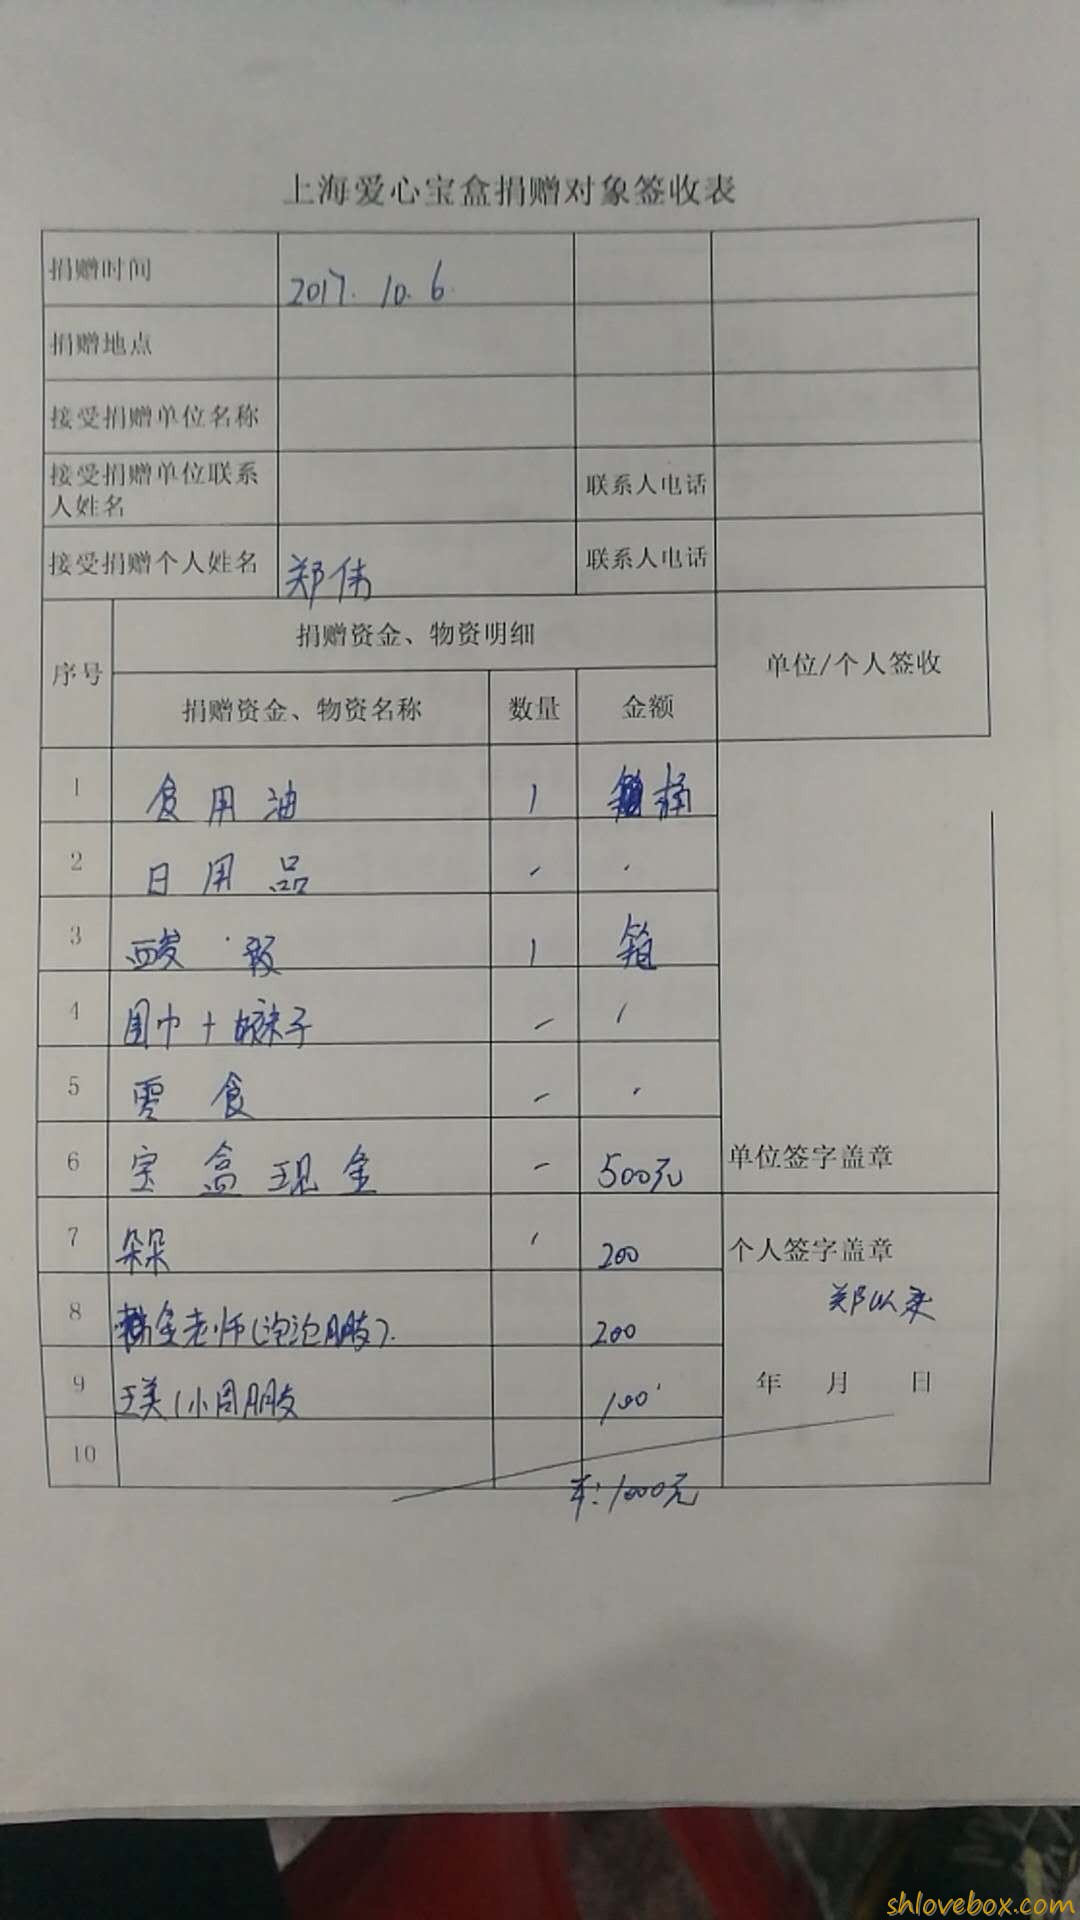 上海爱心宝盒捐赠对象签收表
捐赠时间 2017. 10. 6.
捐赠地点
接受捐赠单位名称
接受捐赠单位联系人姓名 联系人电话
接受捐赠个人姓名 郑伟 联系人电话
序号 捐赠资金、物资明细 单位/个人签收
捐赠资金、物资名称 数量 金额
1 食用油 1 桶
2 日用品
3 酸 1 箱
4 围巾+袜子
5 零食
6 宝盒现金 - 500元
7 朵朵 200
8 老师(泡泡朋友). 200
9 王美(小周朋友 100
10
单位签字盖章
个人签字盖章
郑以柔
年 月 日
1000元
shlovebox.com